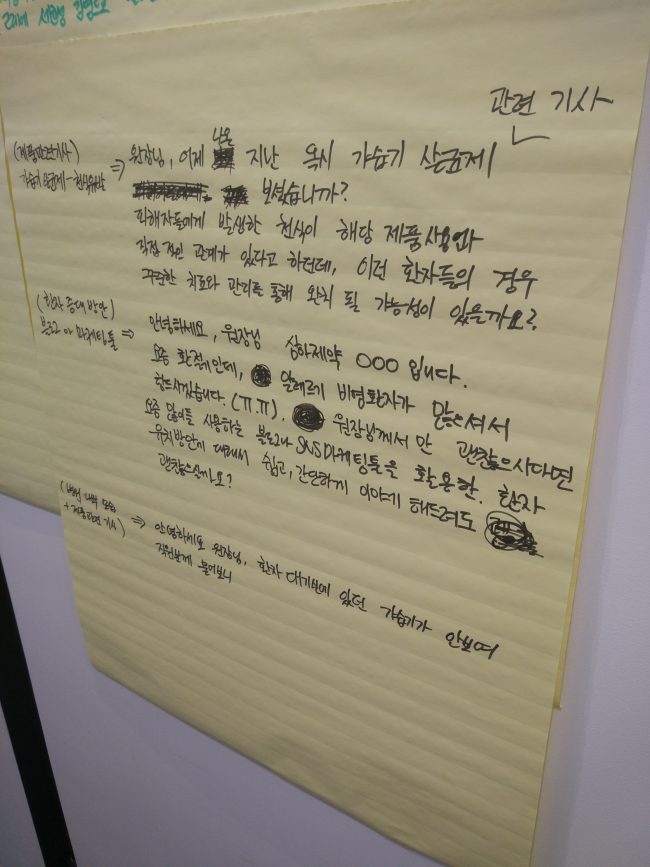 관련 기사
(제품관련기사)
가습기 살균제-천식유발
⇒ 원장님, 어제 나온 지난 옥시 가습기 살균제
보셨습니까?
피해자들에게 발생한 천식이 해당 제품사용과
직접적인 관계가 있다고 하던데, 이런 환자들의 경우
꾸준한 치료와 관리를 통해 완치 될 가능성이 있을까요?
(환자 증대 방안)
블로그 마케팅툴
⇒ 안녕하세요, 원장님 상하제약 OOO 입니다.
요즘 환절기인데, 알레르기 비염환자가 많으셔서
힘드시겠습니다.(ㅠ.ㅠ). 원장님께서만 괜찮으시다면
요즘 많이들 사용하는 블로그나 SNS마케팅툴을 활용한. 환자
유치방안에 대해서 쉽고, 간단하게 이야기 해드려도
괜찮으실까요?
⇒ 안녕하세요 원장님, 환자 대기실에 있던 가습기가 안보여
직원분께 물어보니